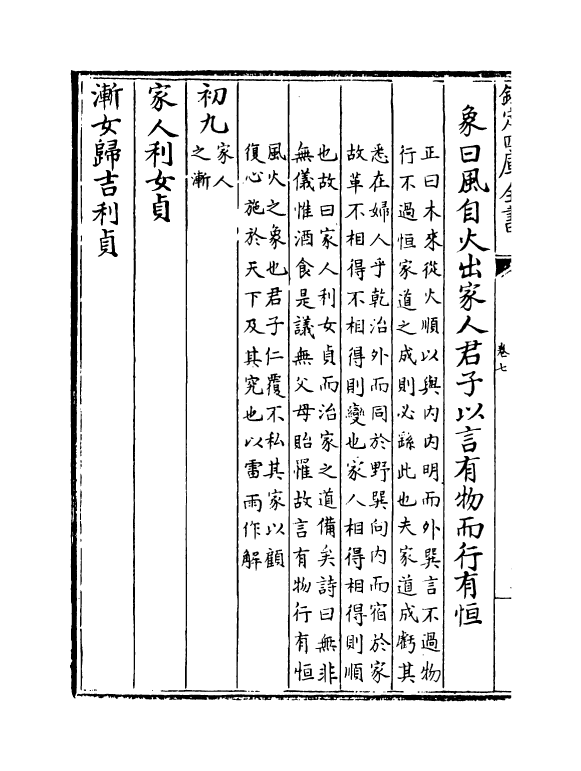 欽定四庫全書
卷七
象曰風自火出家人君子以言有物而行有恒
正曰木來從火順以與内内明而外巽言不過物
行不過恒家道之成則必繇此也夫家道成虧其
悉在婦人乎乾治外而同於野巽向内而宿於家
故革不相得不相得則變也家人相得相得則順
也故曰家人利女貞而治家之道備矣詩曰無非
無儀惟酒食是議無父母貽罹故言有物行有恒
風火之象也君子仁覆不私其家以顧
復心施於天下及其究也以雷雨作解
初九家人
之漸
家人利女貞
漸女歸吉利貞